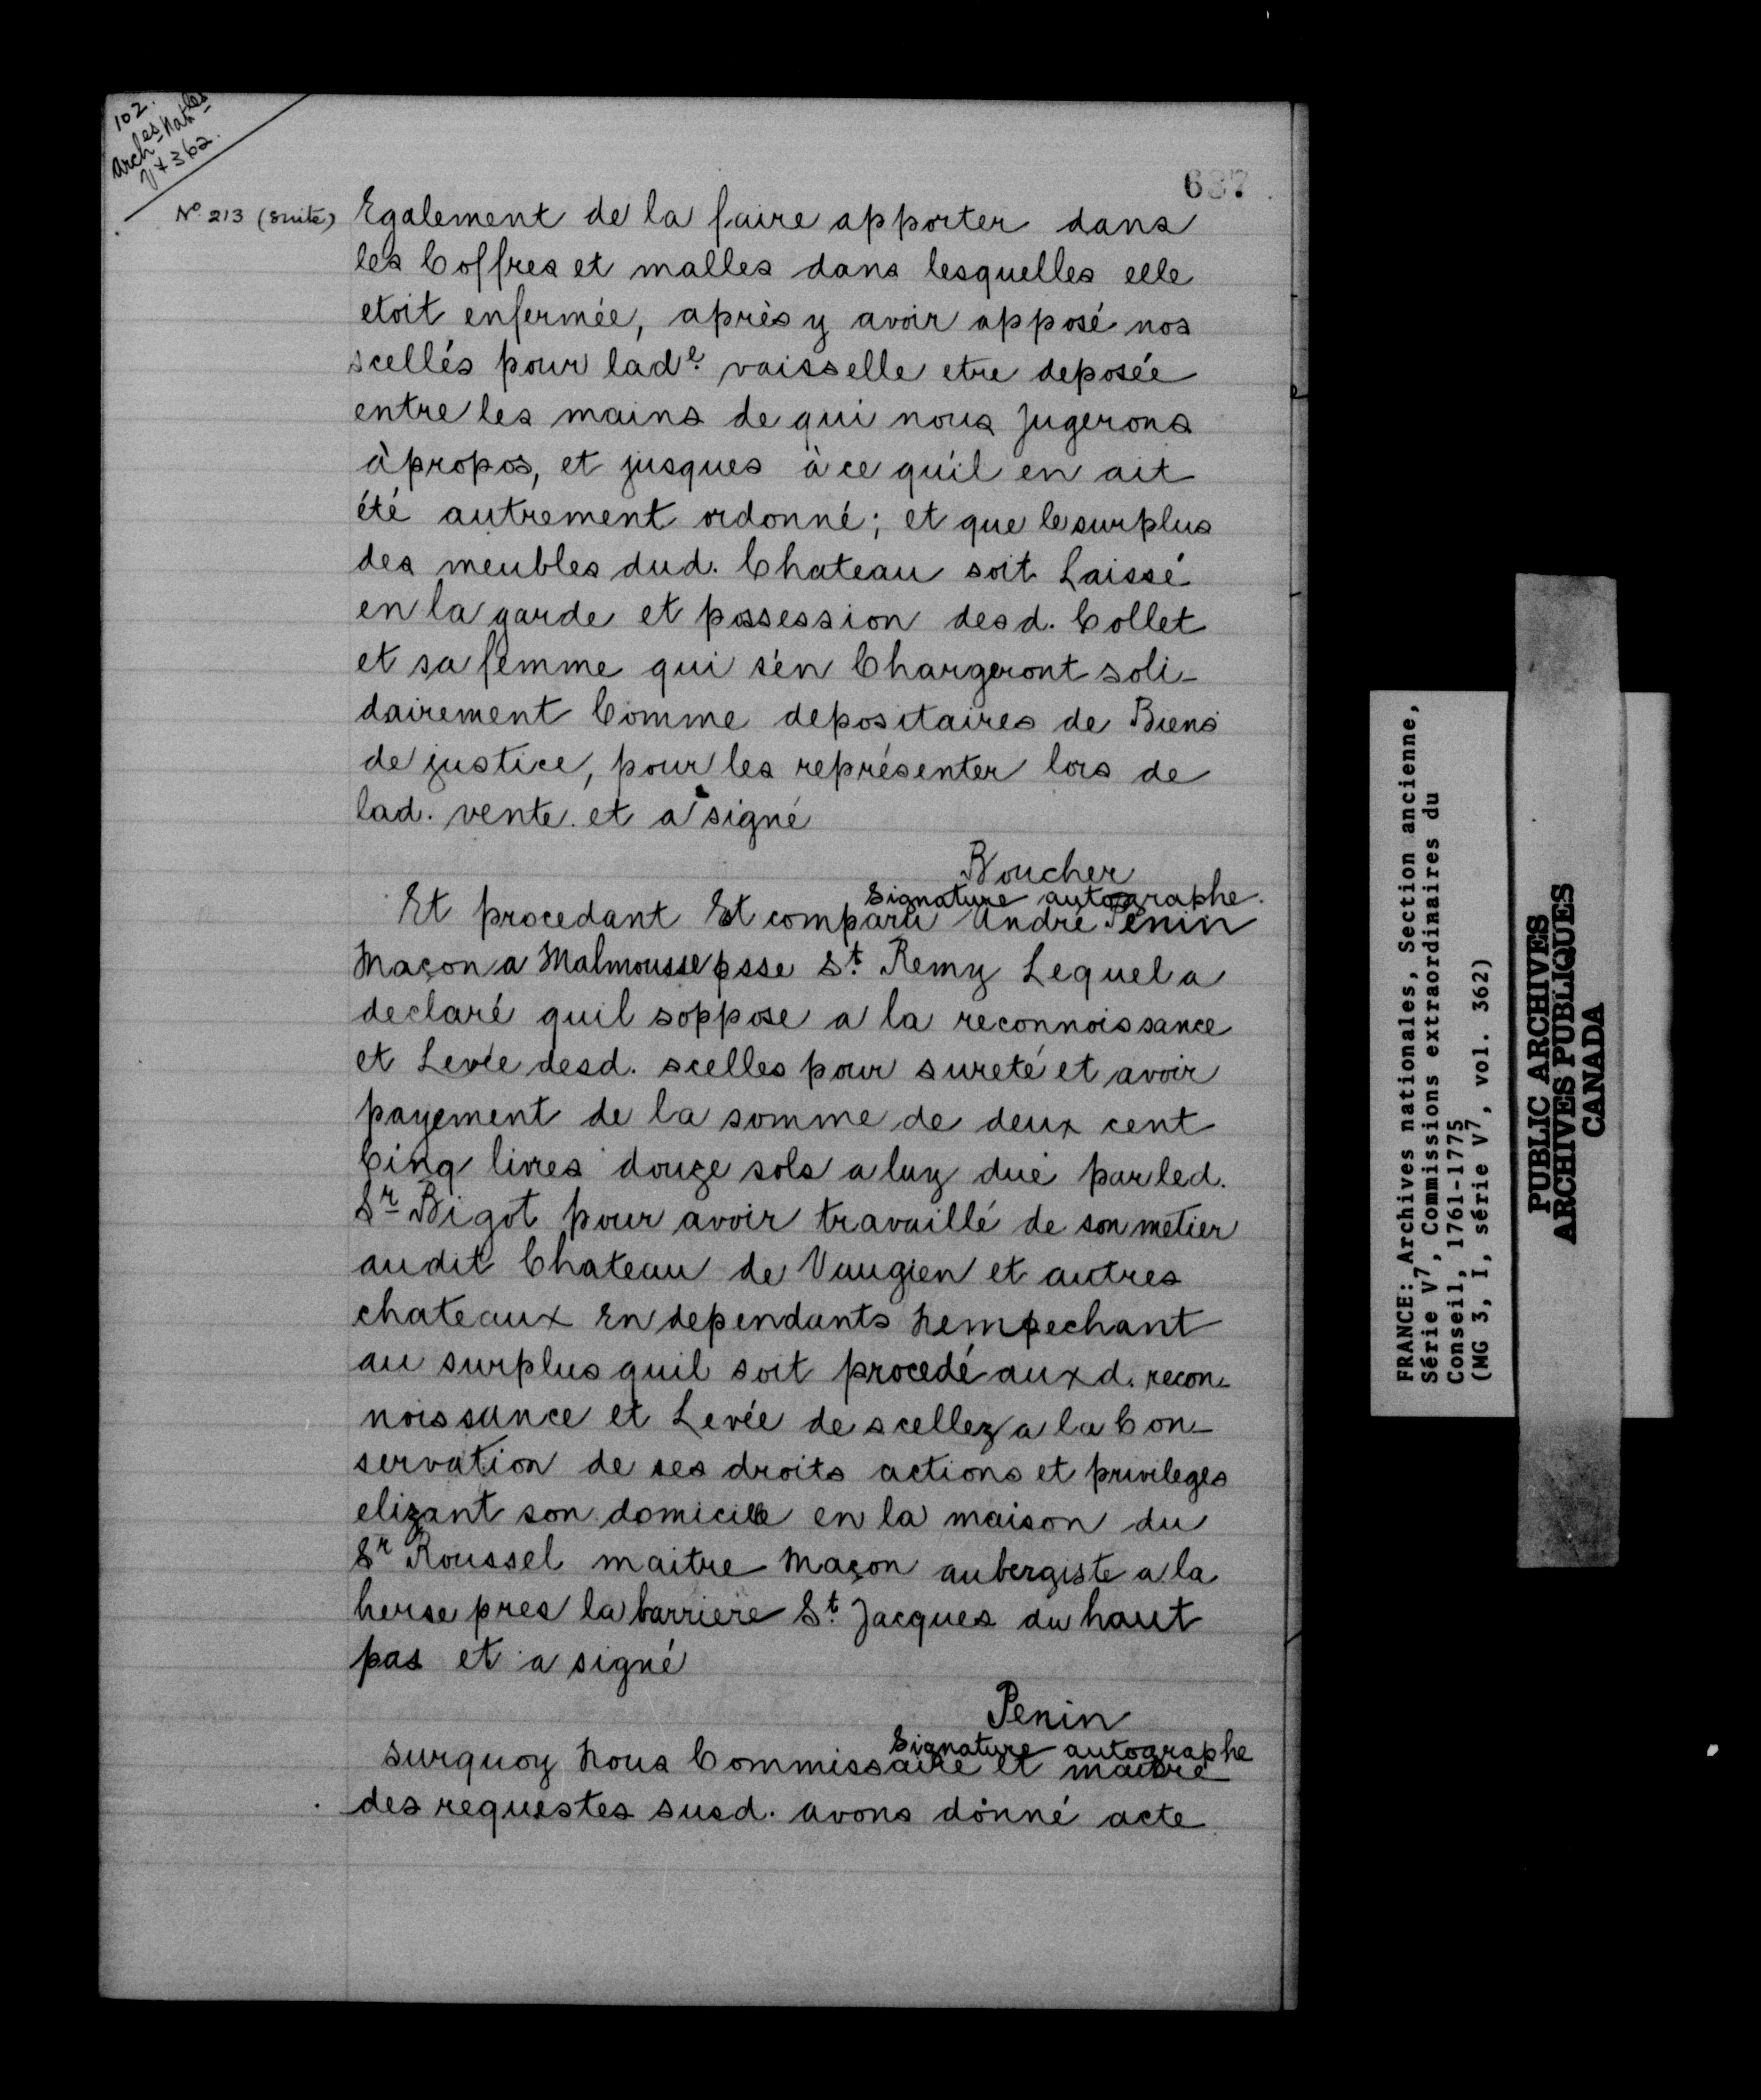 102.
Arch<sup>es</sup> Nat<sup>les</sup>
V7 362.
637
N° 213 (suite)
Egalement de la faire apporter dans
les Coffres et malles dans lesquelles elle
etoit enfermée, après y avoir apposé nos
scellés pour lad<sup>e</sup>. vaisselle etre deposée
entre les mains de qui nous Jugerons
à propos, et jusques à ce qu'il en ait
été autrement ordonné; et que le surplus
des meubles dud. Chateau soit Laissé
en la garde et possession desd. Collet
et sa femme qui s'en Chargeront soli-
dairement Comme depositaires de Biens
de justice, pour les représenter lors de
lad. vente. et a signé
Boucher
Signature autographe.
Et procedant Est comparu André Penin
Maçon a Malmousse psse S<sup>t</sup>. Remy Lequel a
declaré quil soppose a la reconnoissance
et Levée desd. scelles pour sureté et avoir
payement de la somme de deux cent
Cinq livres douze sols a luy due par led.
S<sup>r</sup> Bigot pour avoir travaillé de son metier
audit Chateau de Vaugien et autres
chateaux En dependants Nempechant
au surplus quil soit procedé auxd. recon-
noissance et Levée de scellez a la Con-
servation de ses droits actions et privileges
elizant son domicille en la maison du
S<sup>r</sup> Roussel maitre Maçon aubergiste a la
herse pres la barriere S<sup>t</sup>. Jacques du haut
pas et a signé
Penin
Signature autographe
surquoy Nous Commissaire et maitre
des requestes susd. avons donné acte
FRANCE: Archives nationales, Section ancienne,
Série V7, Commissions extraordinaires du
Conseil, 1761-1775
(MG 3, I, série V7, vol. 362)
PUBLIC ARCHIVES
ARCHIVES PUBLIQUES
CANADA